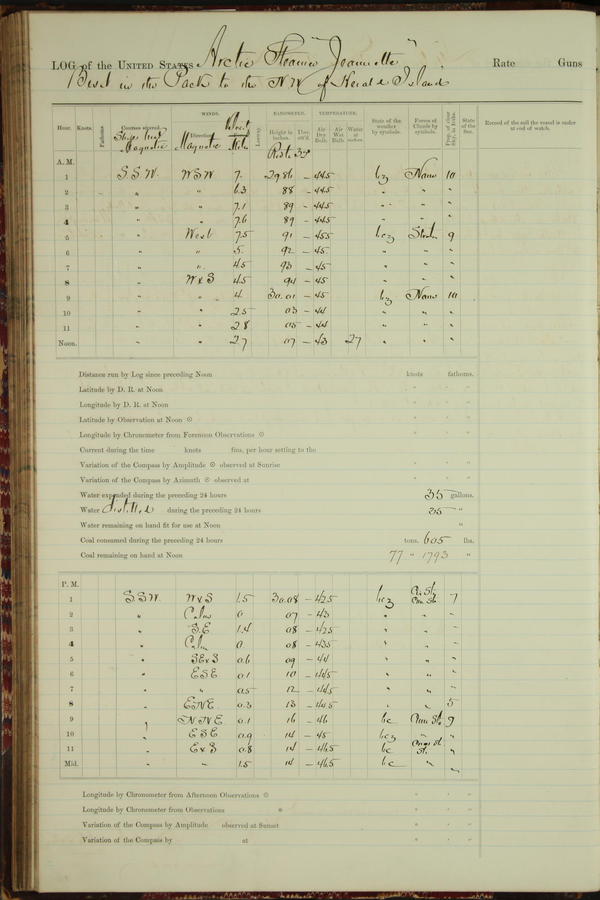 LOG of the UNITED STATES Arctic Steamer "Jeannette" Rate Guns
Beset in the Pack to the N.W. of Herald Island
WINDS. BAROMETER. TEMPERATURE.
Hour. Knots. Fathoms. Courses steered. Ships head Magnetic Direction. Magnetic Leeway. Height in inches. Ther. att'd. Air Dry Bulb. Air Wet Bulb. Water at surface. State of the weather by symbols. Forms of Clouds by symbols. State of the Sea. Record of the sail the vessel is under at end of watch.
A. M.
1 S.S.W. WSW 7. 29.86 -44.5 bcz 10
2 " " 6.3 88 -44.5 " " "
3 " " 7.1 89 -44.5 " " "
4 " " 7.6 89 -44.5 " " "
5 " West 7.5 91 -45.5 bcz 9
6 " " 5. 92 -45 " " "
7 " " 4.5 93 -45 " " "
8 " WxS 4.5 94 -45 " " "
9 " " 4. 30.01 -45 bz 10
10 " " 2.5 03 -44 " " "
11 " " 2.8 05 -44 " " "
Noon. " " 2.7 07 -43 27 " " "
Distance run by Log since preceding Noon knots fathoms.
Latitude by D. R. at Noon ° ' "
Longitude by D. R. at Noon ° ' "
Latitude by Observation at Noon ☉ ° ' "
Longitude by Chronometer from Forenoon Observations ☉ ° ' "
Current during the time knots fms. per hour setting to the
Variation of the Compass by Amplitude ☉ observed at Sunrise ° ' "
Variation of the Compass by Azimuth ☉ observed at ° ' "
Water expended during the preceding 24 hours 35 gallons.
Water distilled during the preceding 24 hours 35 "
Water remaining on hand fit for use at Noon "
Coal consumed during the preceding 24 hours tons. 605 lbs.
Coal remaining on hand at Noon 77 " 1793 "
P. M.
1 S.S.W. WxS 1.5 30.08 -42.5 bcz 7
2 " Calm 0 07 -43 " " "
3 " S.E 1.4 08 -42.5 " " "
4 " Calm 0 08 -43.5 " " "
5 " SExS 0.6 09 -44 " " "
6 " ESE 0.1 10 -44.5 " " "
7 " " 0.5 12 -44.5 " " "
8 " ENE 0.3 13 -44.5 " " 5
9 " NNE 0.1 16 -46 bc 9
10 " ESE 0.9 14 -45 bcz " "
11 " ExS 0.8 14 -46.5 bc "
Mid. " " 1.5 14 -46.5 bc " "
Longitude by Chronometer from Afternoon Observations ☉ ° ' "
Longitude by Chronometer from Observations * ° ' "
Variation of the Compass by Amplitude observed at Sunset ° ' "
Variation of the Compass by at ° ' "